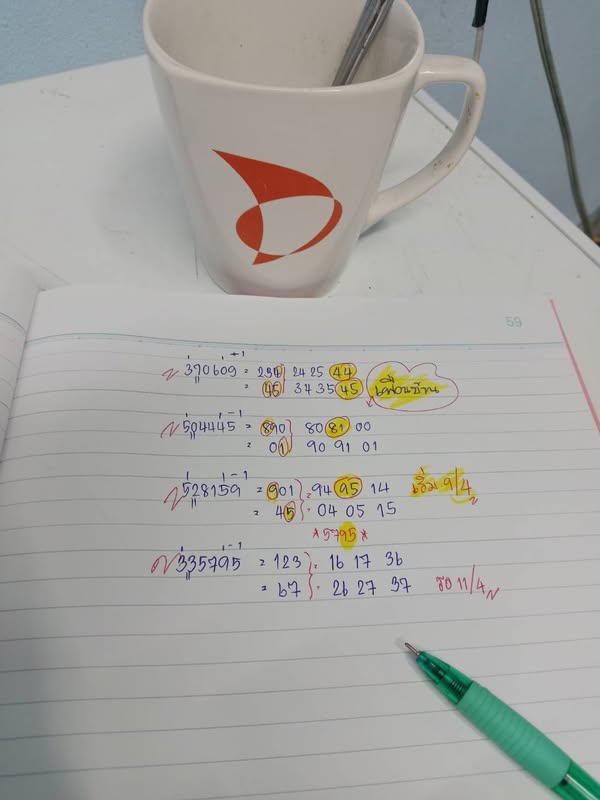 59
+1
370609 = 234 24 25 44
= 45 34 35 45 เพื่อนบ้าน
-1
504445 = 890 80 81 00
= 01 90 91 01
-1
528159 = 901 = 94 95 14 เริ่ม 9/4
= 45 04 05 15
*5795*
-1
335795 = 123 = 16 17 36
= 67 26 27 37 รอ 11/4